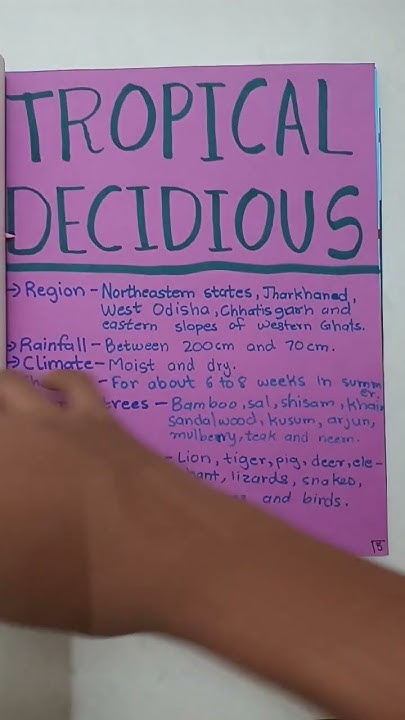 TROPICAL
DECIDIOUS
→ Region - Northeastern states, Jharkhaned,
West Odisha, Chhatisgarh and
eastern slopes of western Ghats.
→ Rainfall - Between 200cm and 70cm.
→ Climate - Moist and dry.
- For about 6 to 8 weeks in summ
er.
trees - Bamboo, sal, shisam, khair
sandalwood, kusum, arjun,
mulberry, teak and neem.
- Lion, tiger, pig, deer, ele-
hant, lizards, snakes,
and birds.